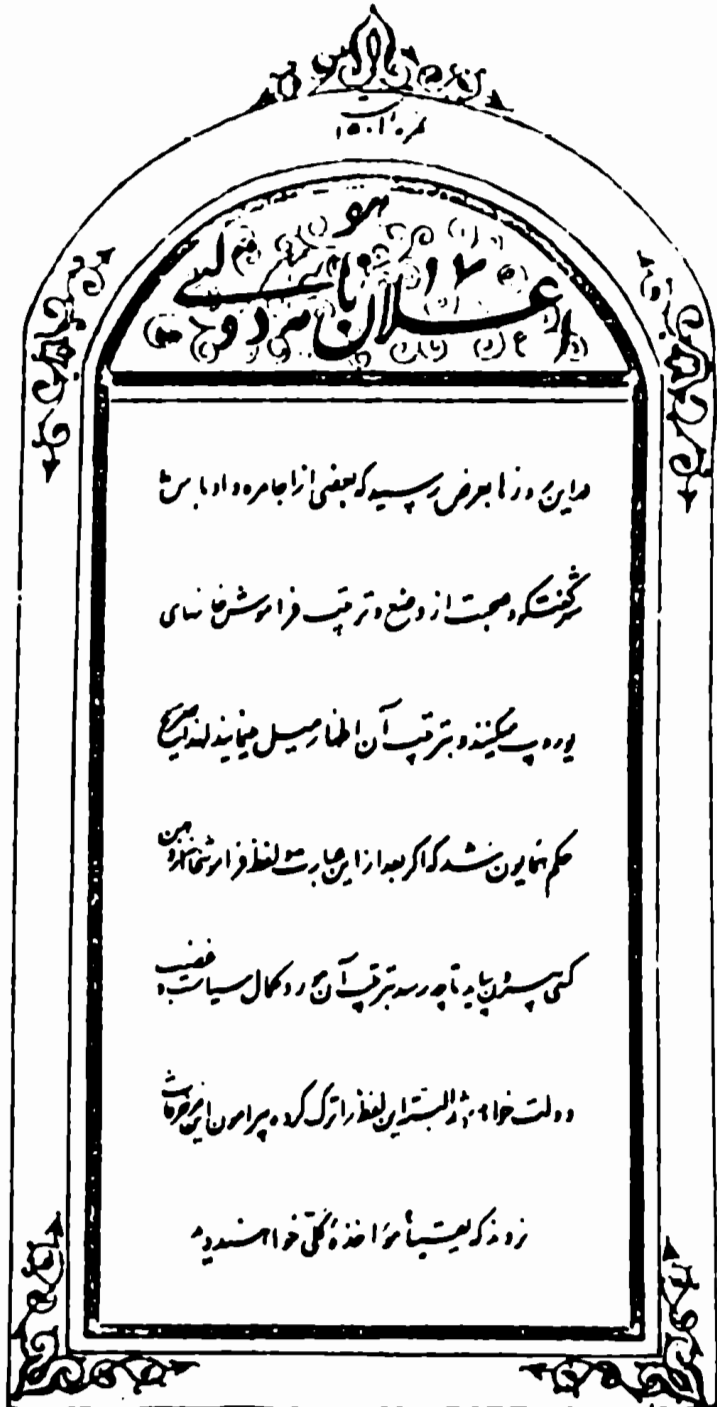 نمره ۵۰۱
هو
اعلان نامه دولتی
در این روزها بعرض رسید که بعضی از اجامره و اوباش شهر
گفتگو و صحبت از وضع و ترتیب فراموش خانهای
یوروپ میکنند و بترتیب آن اظهار میل مینمایند لهذا صریح
حکم همایون شد که اگر بعد از این عبارت و لفظ فراموشخانه از دهن
کسی بیرون بیاید تا چه رسد بترتیب آن مورد کمال سیاست و غضب
دولت خواهد شد البته این لفظ را ترک کرده پیرامون این مزخرفات
نروند که یقیناً مؤاخذه کلی خواهند دید